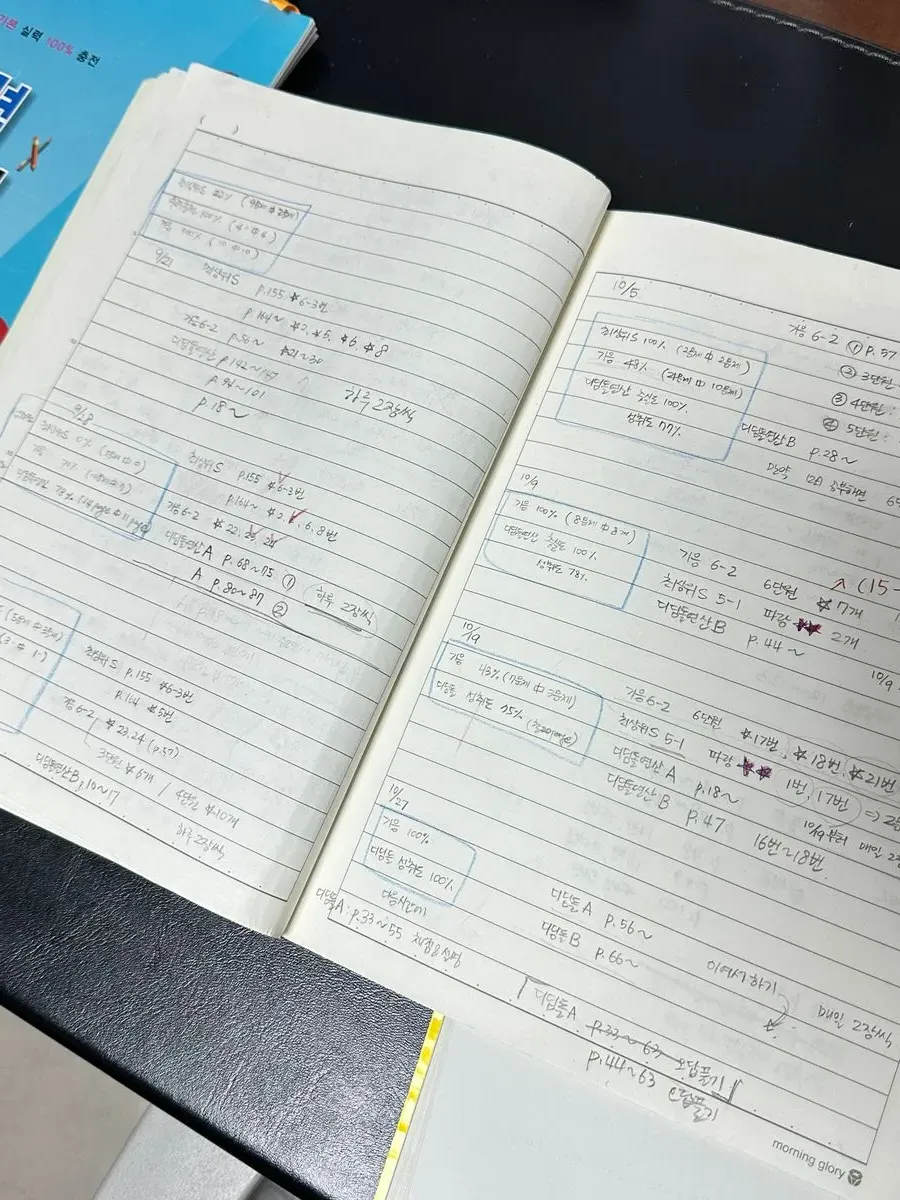 기본 실력 100% 충전
( )
최상위S 22% (9문제 中 2문제)
100% (4 中 4)
기응 100% (10 中 10)
9/21
최상위S p.155 ☆6-3번
p.164~ ☆2, ☆5, ☆6, ☆8
기응6-2 p.56~ ☆21~30
디딤돌연산 p.142~147
p.96~101
p.18~
하루 2장씩
9/28
최상위S 0%
70%
78%
최상위S p.155 ☆6-3번
p.164~ ☆2, 5, 6, 8번
기응6-2 ☆22, 23, 24
디딤돌연산A p.68~75 ①
A p.80~87 ②
하루 2장씩
최상위S p.155 ☆6-3번
p.164 ☆5번
기응 6-2 ☆23, 24 (p.57)
3단원 ☆6개 / 4단원 ☆10개
디딤돌연산B p.10~17
하루 2장씩
10/5
최상위S 100% (2문제 中 2문제)
기응 48% (21문제 中 10문제)
디딤돌연산 충실도 100%
성취도 77%
기응 6-2 ① p.57
② 3단원
③ 4단원 :
④ 5단원 :
디딤돌연산B p.28~
만약
10/9
기응 100% (8문제 中 8개)
디딤돌연산 충실도 100%
성취도 78%
기응 6-2 6단원 ☆7개
최상위S 5-1 파랑 ★★ 2개
디딤돌연산B p.44~
^ (15-
10/9
10/19
기응 43% (7문제 中 3문제)
디딤돌 성취도 75%
기응6-2 6단원 ☆17번, ☆18번, ☆21번
최상위S 5-1 파랑 ★★ 1번, 17번 ⇒
디딤돌연산A p.18~
10/19부터 매일 2장
디딤돌연산B p.47
16번~18번
10/27
기응 100%
디딤돌 성취도 100%
다음시간에
디딤돌A : p.33~55 채점&설명
디딤돌A p.56~
디딤돌B p.66~
이어서 하기
매일 2장씩
디딤돌A p.33~63 오답풀기
p.44~63 오답풀기
morning glory